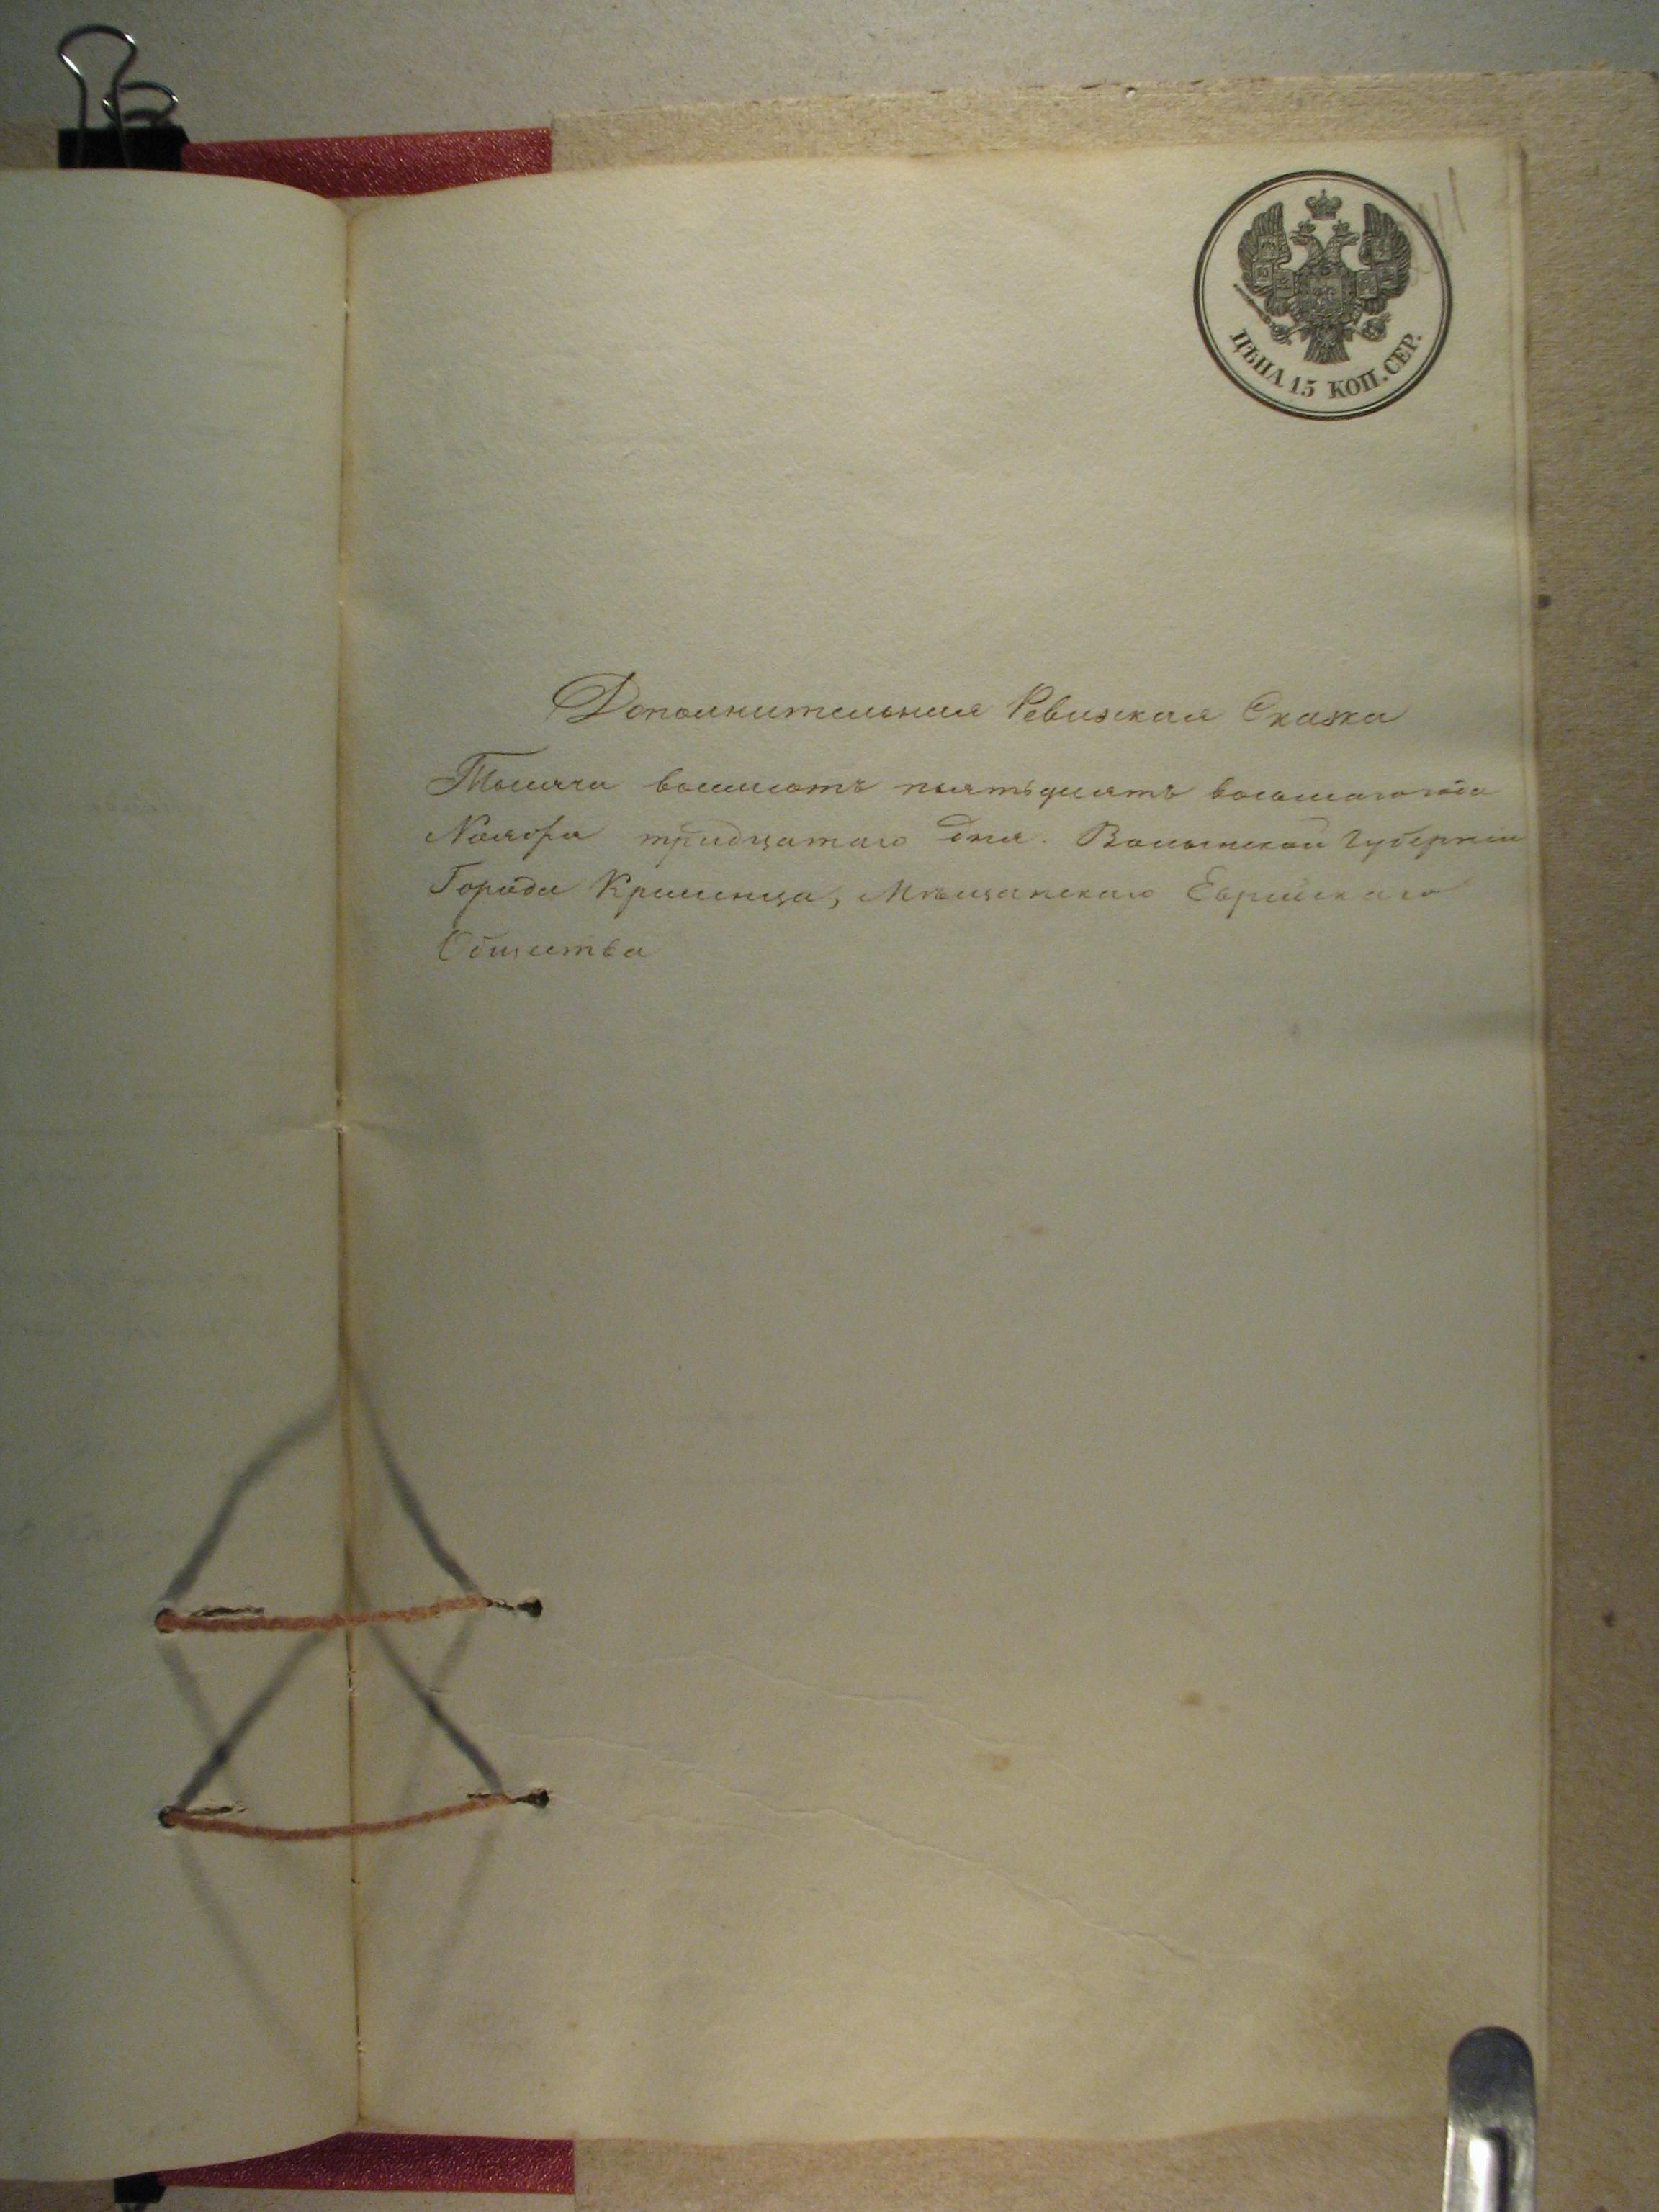 ЦѢНА 15 КОП. СЕР.
Дополнительная Ревизская Сказка
Тысяча восемсотъ пятьдесятъ восьмаго года
Ноября тридцатаго дня. Волынской Губерніи
Города Кременца, Мѣщанскаго Еврейскаго
Общества